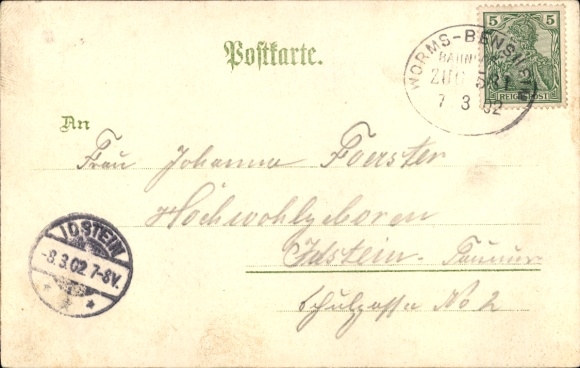 Postkarte.
5 5
REICHSPOST
WORMS-BENSHEIM
BAHNPOST
ZUG 581
7 3 02
An
Frau Johanna Foerster
Hochwohlgeboren
Idstein-Taunus
Schulgasse No 2
IDSTEIN
-8.3.02 7-8V.